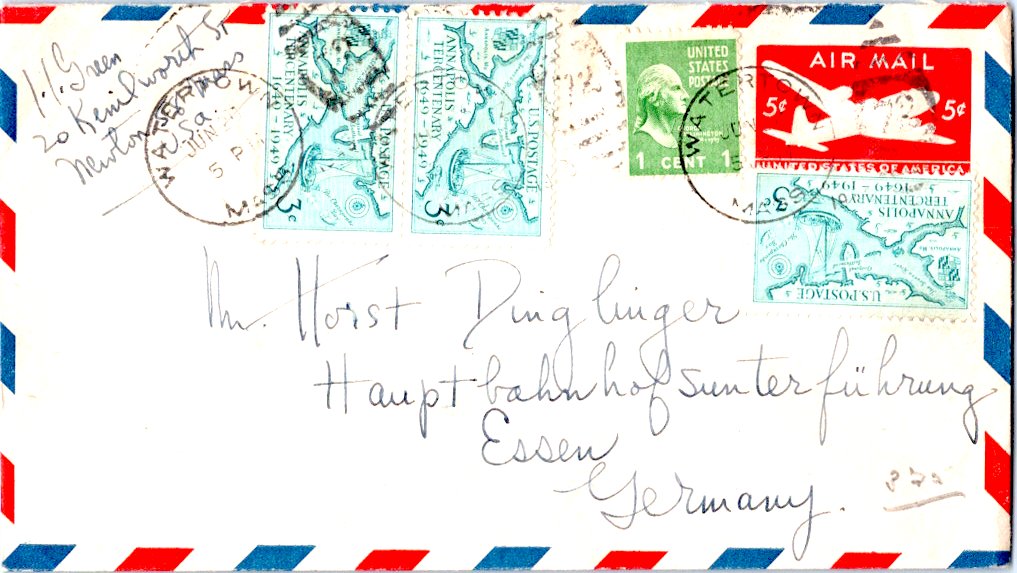 Green
20 Kenilworth St
Newton Mass
USa.
WATERTOWN
JUN
5 P
MASS
U.S. POSTAGE
ANNAPOLIS
TERCENTENARY
1649-1949
3¢
U.S. POSTAGE
ANNAPOLIS
TERCENTENARY
1649-1949
3¢
UNITED
STATES
POSTAGE
1 CENT 1
WATERTOWN
JUN
5
MASS
AIR MAIL
5¢ 5¢
UNITED STATES OF AMERICA
U.S. POSTAGE
ANNAPOLIS
TERCENTENARY
1649-1949
3¢
Mr. Horst Dinglinger
Hauptbahnhofsunterführung
Essen
Germany.